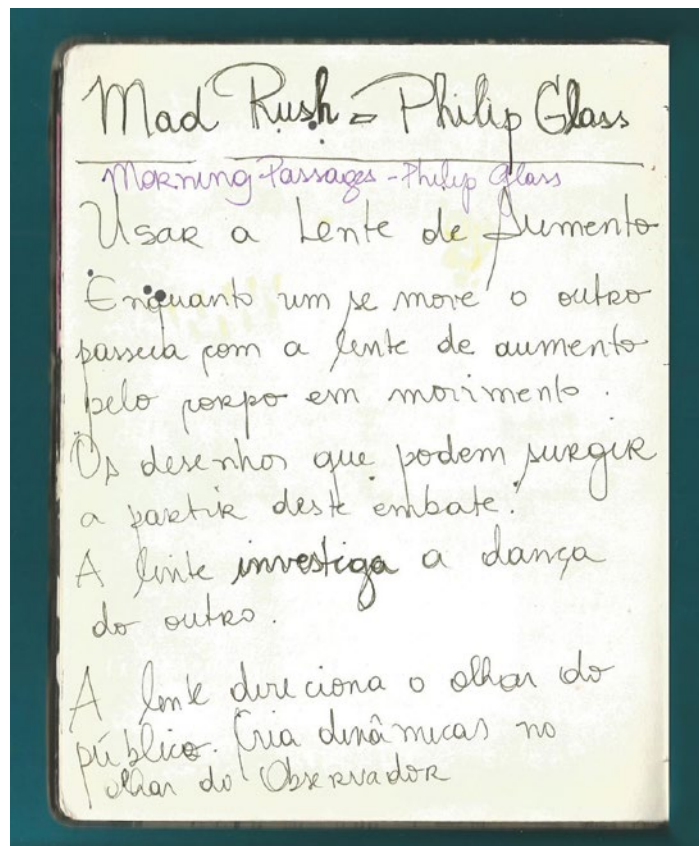 Mad Rush = Philip Glass
Morning Passages - Philip Glass
Usar a Lente de Aumento
Enquanto um se move o outro
passeia com a lente de aumento
pelo corpo em movimento.
Os desenhos que podem surgir
a partir deste embate!
A lente investiga a dança
do outro.
A lente direciona o olhar do
público. Cria dinâmicas no
olhar do Observador